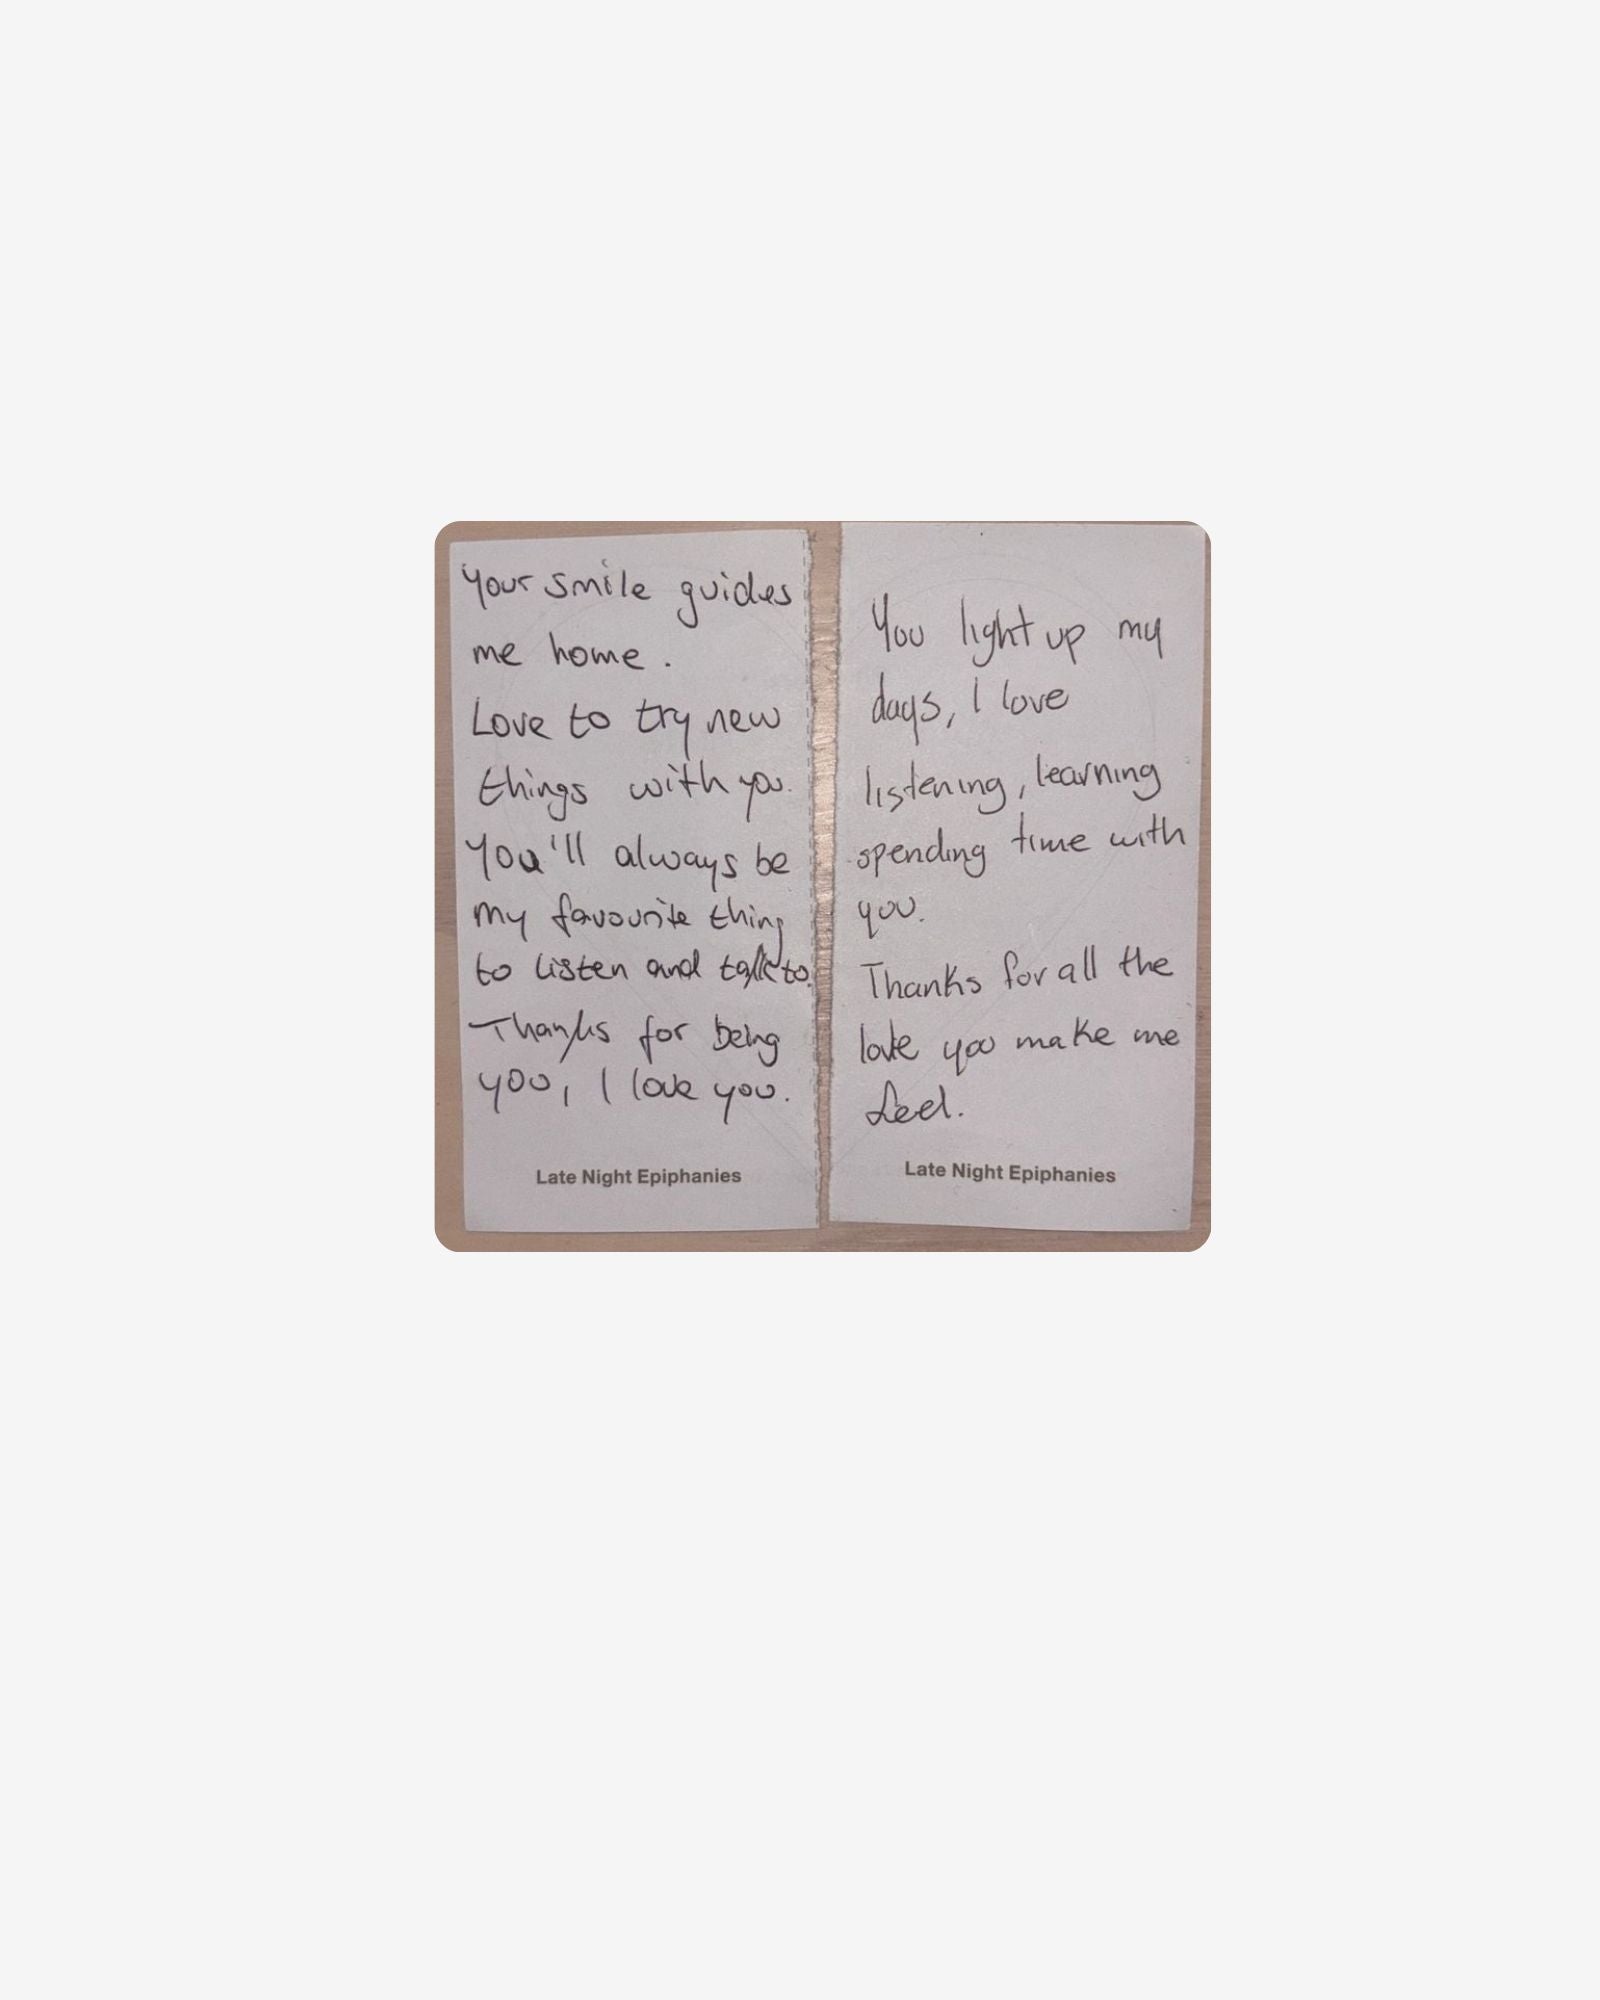 Your smile guides
me home.
Love to try new
things with you.
You'll always be
my favourite thing
to listen and talk to.
Thanks for being
you, I love you.
Late Night Epiphanies
You light up my
days, I love
listening, learning
spending time with
you.
Thanks for all the
love you make me
feel.
Late Night Epiphanies